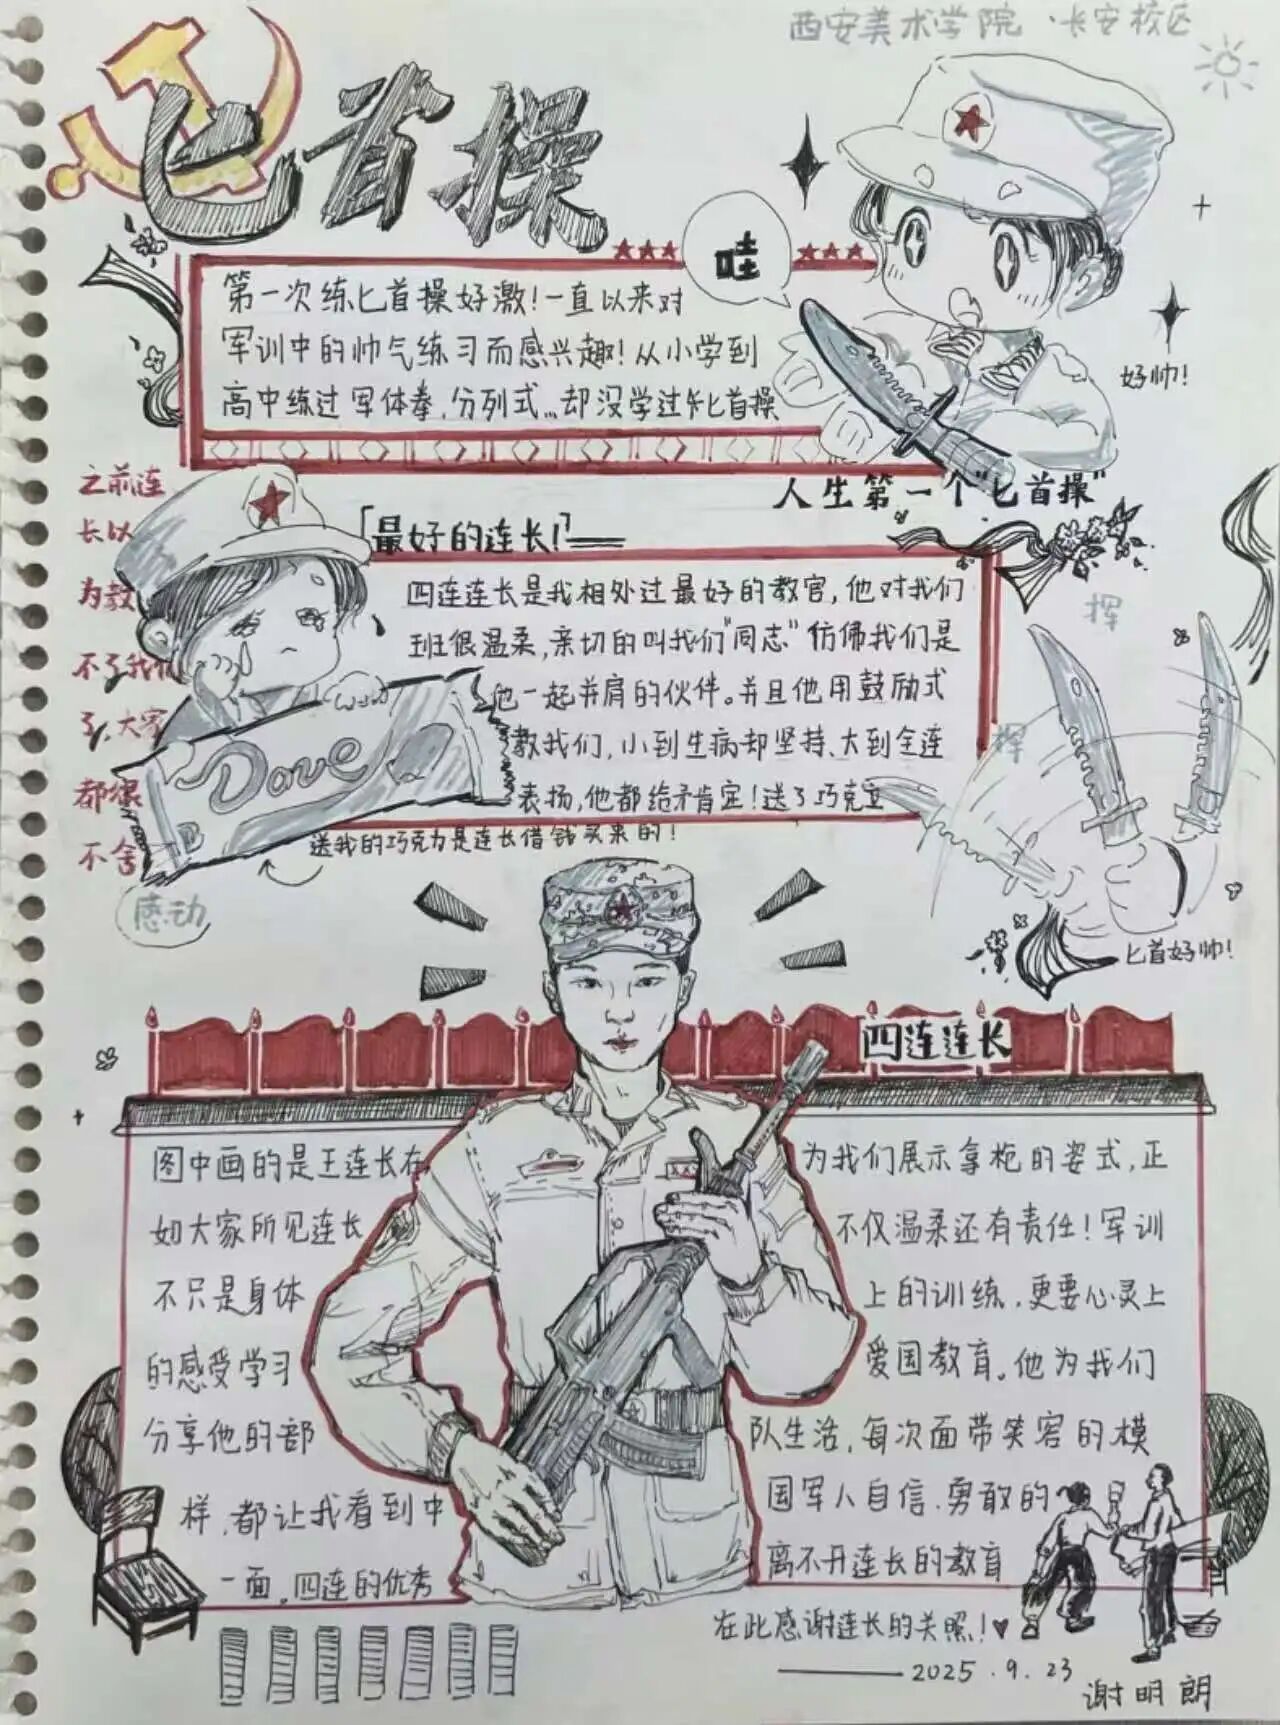 西安美术学院·长安校区
匕首操
哇
第一次练匕首操好激！一直以来对
军训中的帅气练习而感兴趣！从小学到
高中练过军体拳，分列式…却没学过匕首操
好帅！
人生第一个"匕首操"
之前连
长以
为教
不了我们
了，大家
都很
不舍
「最好的连长！」
四连连长是我相处过最好的教官，他对我们
班很温柔，亲切的叫我们"同志"仿佛我们是
他一起并肩的伙伴。并且他用鼓励式
教我们，小到生病却坚持、大到全连
表扬，他都给予肯定！送了巧克力
Dave
送我的巧克力是连长借钱买来的！
感动
挥
挥
匕首好帅！
四连连长
图中画的是王连长在 为我们展示拿枪的姿式，正
如大家所见连长 不仅温柔还有责任！军训
不只是身体 上的训练，更要心灵上
的感受学习 爱国教育。他为我们
分享他的部 队生活，每次面带笑容的模
样，都让我看到中 国军人自信、勇敢的
一面，四连的优秀 离不开连长的教育
在此感谢连长的关照！♥
——2025.9.23
谢明朗